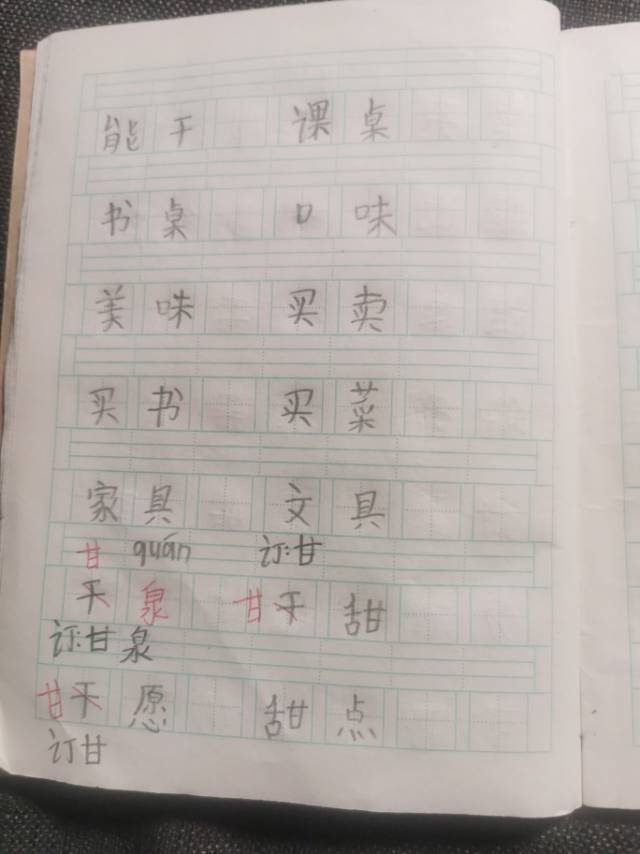 能干 课桌
书桌 口味
美味 买卖
买书 买菜
家具 文具
甘 quán 订:甘
干泉 甘干甜
订:甘泉
甘干愿 甜点
订甘